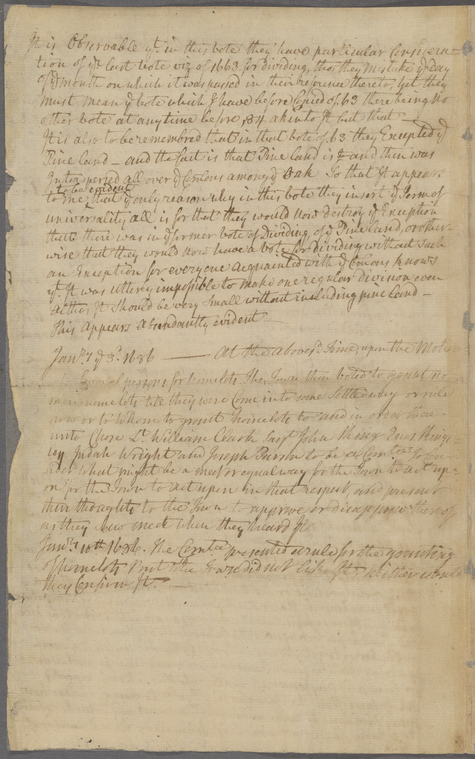 It is Observable yt. in this vote they have particular Considera-
tion of ye Last vote viz of 1663 for dividing, tho they mistake ye day
of ye month on which it was passed in their reference thereto, yet they
must mean ye vote which I have before Copied of 63 there being No
other vote at anytime before 84 akin to it but that —
It is also to be remembered that in that vote of 63 they Excepted ye
Pine Land — and the fact is that Pine Land is & and then was
Interspersed all over ye Comons among ye Oak So that it appears
to be evident
to me that ye only reason why in this vote they insert ye Term of
universality all is for that they would now destroy ye Exception
that there was in ye former vote of Dividing, of ye Pine Land, or other-
wise that they would now have a vote for dividing without Such
an Exception for everyone acquainted with ye Comons knows
yt. it was utterly impossible to make one regular division even
altho it should be very Small without including pine Land —
This appears abundantly evident
Jany. 7 1686 — At the above sd. Time upon the Motion
persons for homelots The Town then voted to grant no
more homelots till they were Come into some Settled way or rule
how or to whom to grant Homelots to and in order there-
unto Chose Lt. William Clark Sarjt John King Enos Kings-
ley Judah Wright and Joseph Parsons to be a Comtee. to
what might be a meet or equal way for the Town to act up-
on for the Town to act upon in that respect, and present
their thoughts to the Town to approve or disapprove thereof
as they Saw meet when they heard it
Jany. 10th 1686. The Comtee presented a rule for the granting
of homelots But the Town did not like it neither would
they Confirm it. —